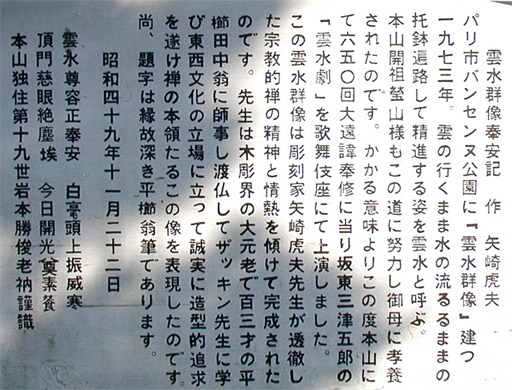 雲水群像奉安記　作　矢崎虎夫
パリ市バンセンヌ公園に『雲水群像』建つ
一九七三年。雲の行くまま水の流るるままの
托鉢遍路して精進する姿を雲水と呼ぶ。
本山開祖瑩山様もこの道に努力し御母に孝養
されたのです。かかる意味よりこの度本山に
て六五〇回大遠諱奉修に当り坂東三津五郎の
『雲水劇』を歌舞伎座にて上演しました。
この雲水群像は彫刻家矢崎虎夫先生が透徹し
た宗教的禅の精神と情熱を傾けて完成された
のです。先生は木彫界の大元老で百三才の平
櫛田中翁に師事し渡仏してザッキン先生に学
び東西文化の立場に立って誠実に造型的追求
を遂け禅の本領たるこの像を表現したのです。
尚、題字は縁故深き平櫛翁筆であります。
昭和四十九年十一月二十二日
雲水尊容正奉安　白毫頭上振威寒
頂門慈眼絶塵埃　今日開光奠素餐
本山独住第十九世岩本勝俊老衲謹識